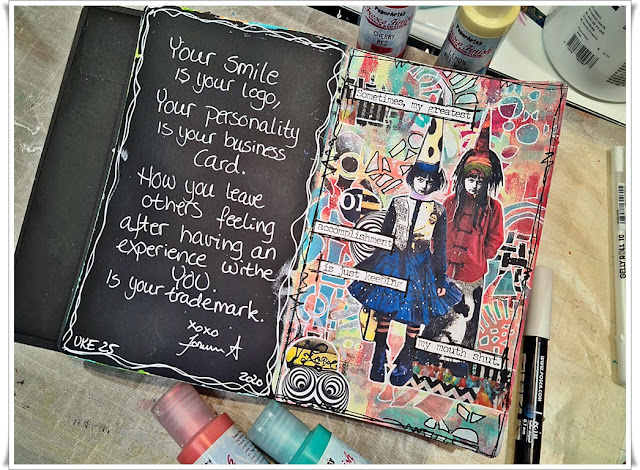 Your smile
is your logo,
Your personality
is your business
Card.
How you leave
others feeling
after having an
experience withe
YOU.
Is your trademark.
xoxo
UKE 25
2020
Sometimes, my greatest
accomplishment
is just keeping
my mouth shut.
01
PaperArtsy
CHERRY
RED
GELLY ROLL 10